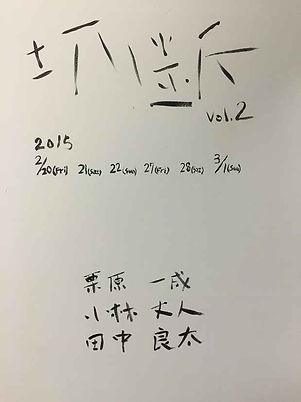 vol.2
2015
2/20(Fri) 21(Sat) 22(Sun) 27(Fri) 28(Sat) 3/1(Sun)
栗原 一成
小林 丈人
田中 良太